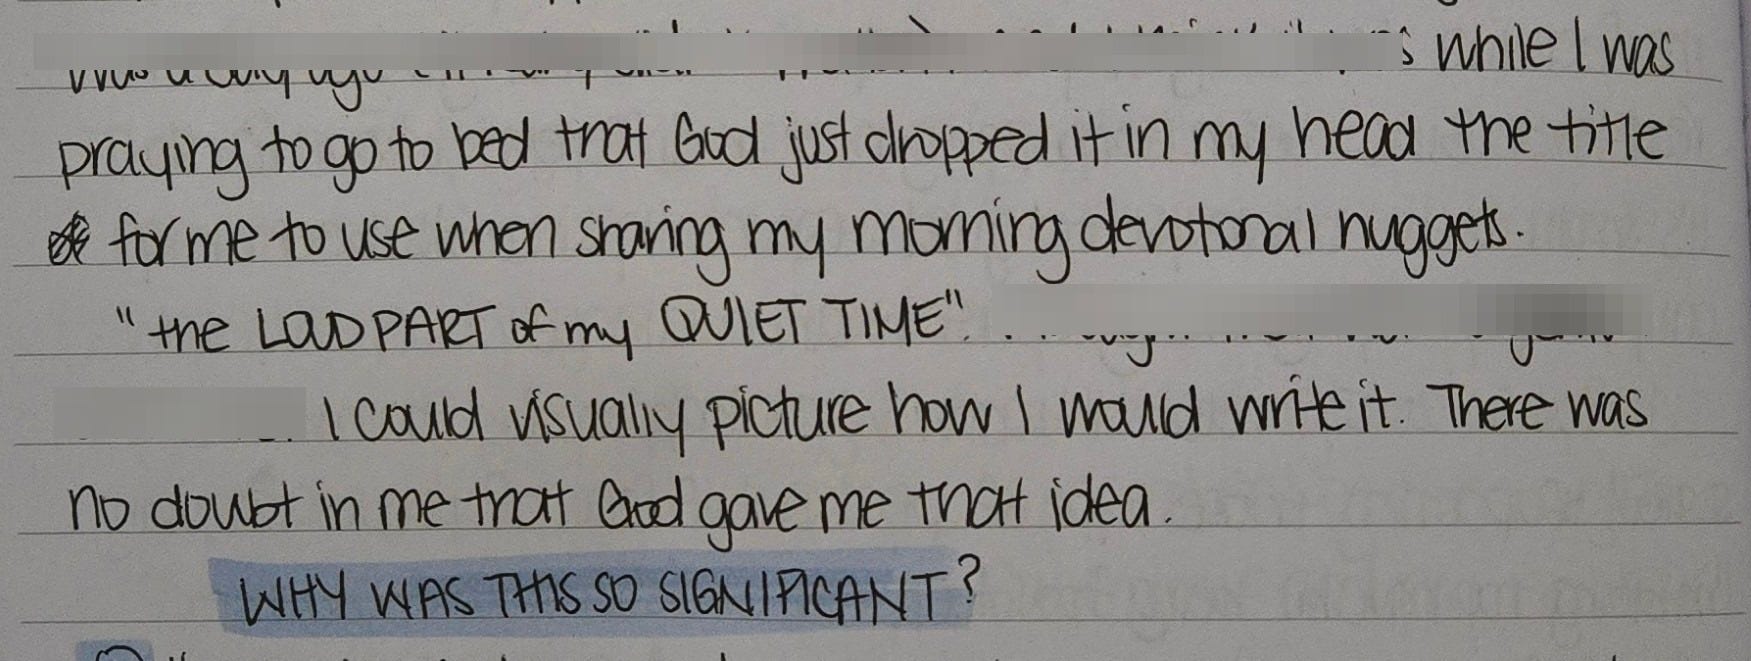 while I was
praying to go to bed that God just dropped it in my head the title
for me to use when sharing my morning devotonal nuggets.
"the LOUD PART of my QUIET TIME".
I could visually picture how I would write it. There was
no doubt in me that God gave me that idea.
WHY WAS THIS SO SIGNIFICANT?